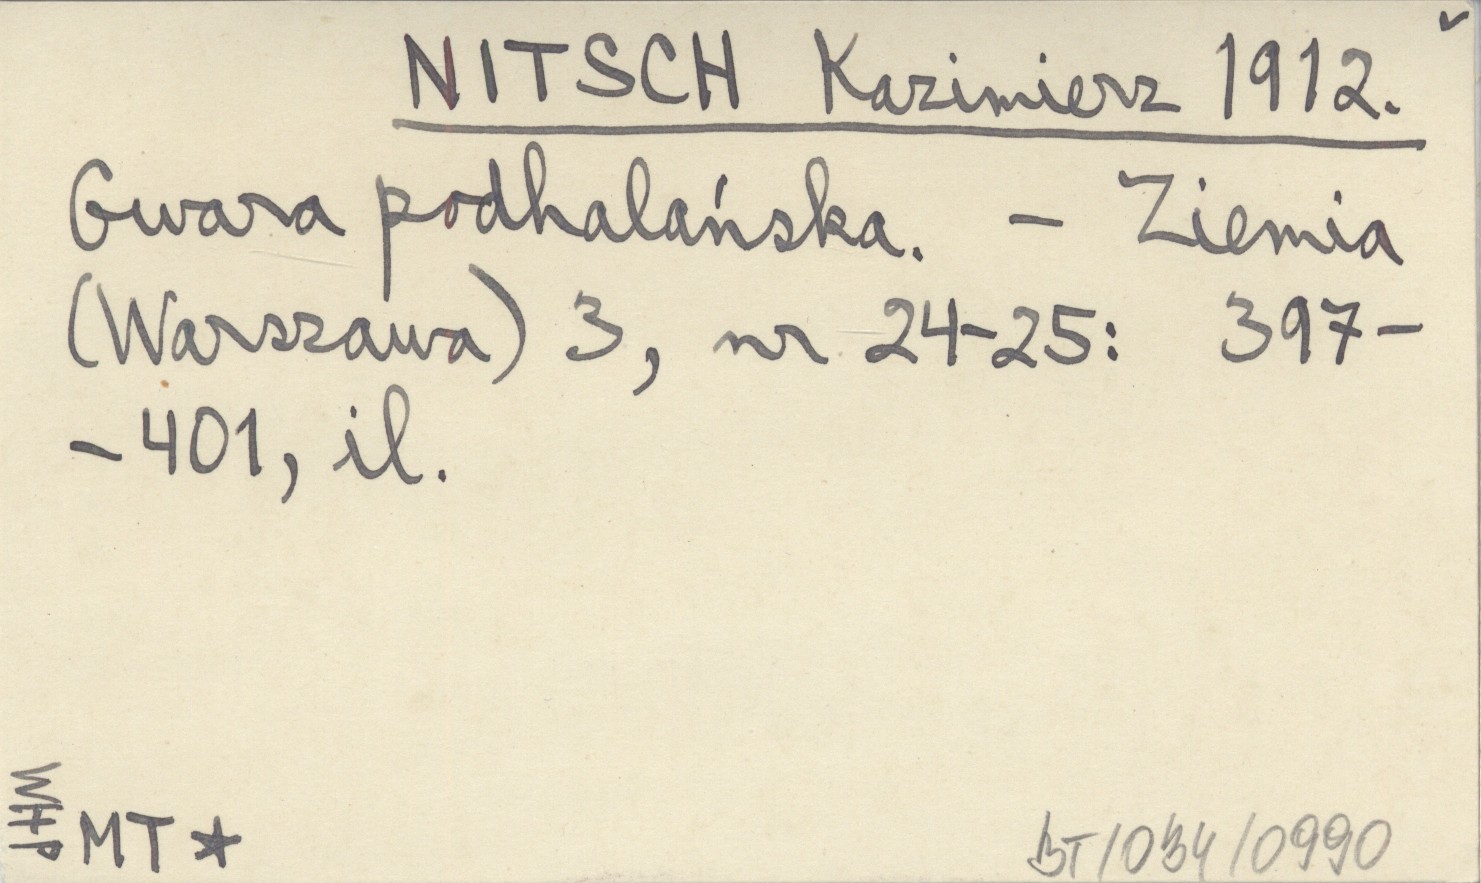 NITSCH Kazimierz 1912.
Gwara podhalańska. - Ziemia
(Warszawa) 3, nr 24-25: 397-
-401, il.
WHP
MT ★
BT/034/0990